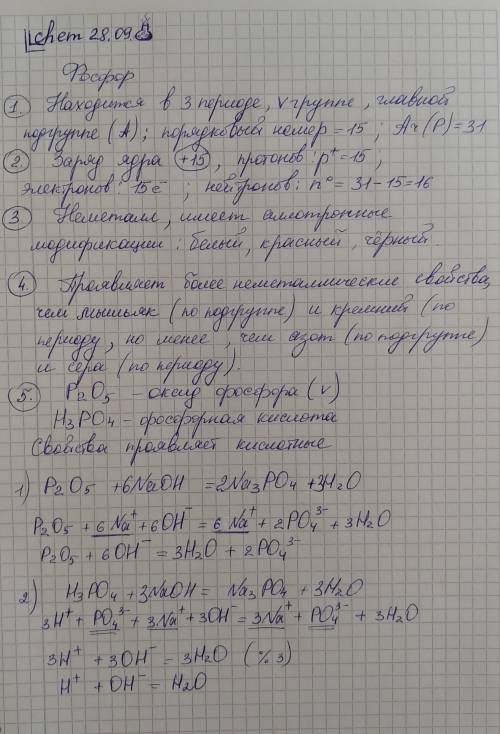 chem 28.09
Фосфор
1. Находится в 3 периоде, V группе, главной
подгруппе (А); порядковый номер = 15; Ar(P)=31
2. Заряд ядра +15, протонов: p⁺ = 15;
электронов: 15ē; нейтронов: n⁰ = 31-15=16
3. Неметалл, имеет аллотропные
модификации: белый, красный, чёрный.
4. Проявляет более неметаллические свойства,
чем мышьяк (по подгруппе) и кремний (по
периоду, но менее, чем азот (по подгруппе)
и сера (по периоду).
5. P₂O₅ - оксид фосфора (V)
H₃PO₄ - фосфорная кислота
Свойства проявляет кислотные
1) P₂O₅ + 6NaOH = 2Na₃PO₄ + 3H₂O
P₂O₅ + 6Na⁺ + 6OH⁻ = 6Na⁺ + 2PO₄³⁻ + 3H₂O
P₂O₅ + 6OH⁻ = 3H₂O + 2PO₄³⁻
2) H₃PO₄ + 3NaOH = Na₃PO₄ + 3H₂O
3H⁺ + PO₄³⁻ + 3Na⁺ + 3OH⁻ = 3Na⁺ + PO₄³⁻ + 3H₂O
3H⁺ + 3OH⁻ = 3H₂O (% 3)
H⁺ + OH⁻ = H₂O